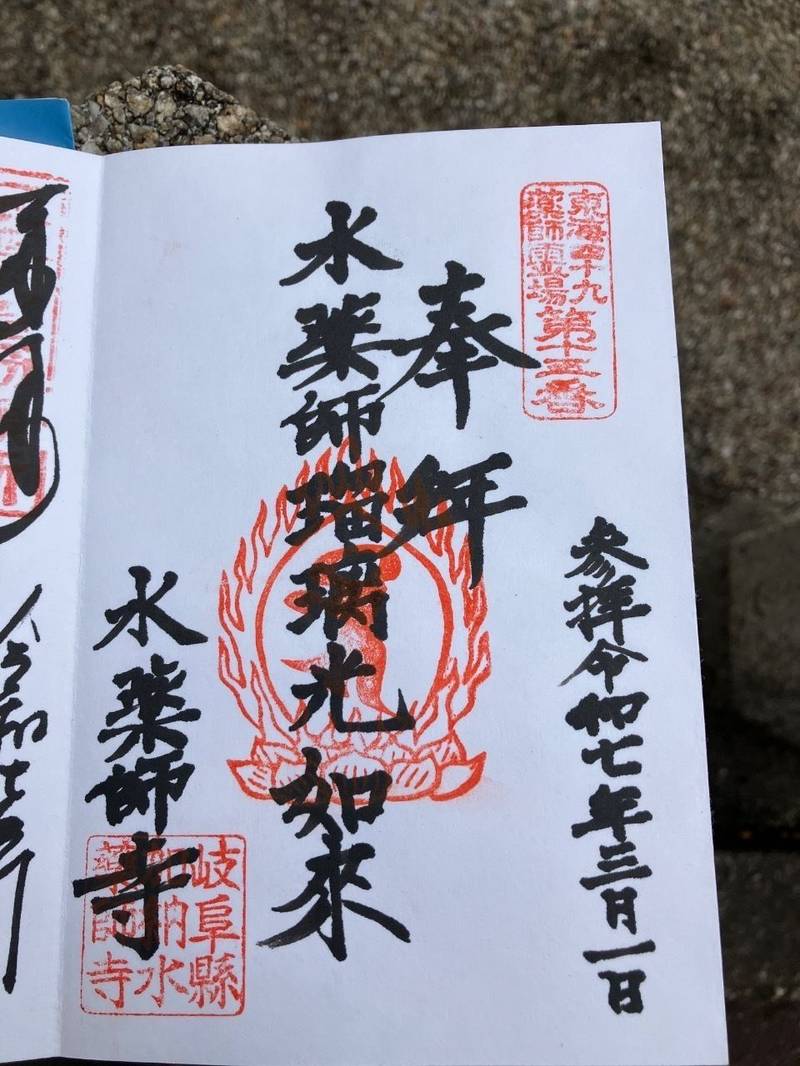 東海四十九
薬師霊場
第十五番
参拝令和七年三月一日
奉拝
水薬師瑠璃光如来
水薬師寺
岐阜縣
加納水
薬師寺
令和七年